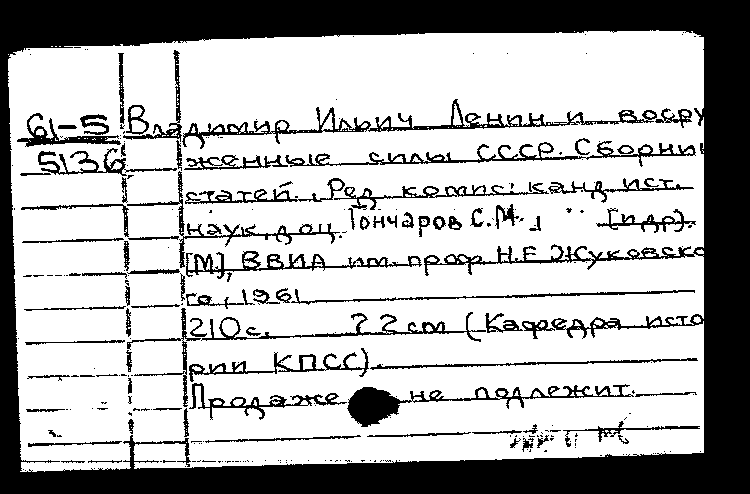 61-5 Владимир Ильич Ленин и воору
5136 женные силы СССР. Сборни
статей. Ред. комис: канд. ист.
наук, доц. Гончаров С.М. [и др].
[М], ВВИА им. проф. Н.Е Жуковско
го, 1961.
210 с. 22 см (Кафедра исто
рии КПСС).
Продаже не подлежит.